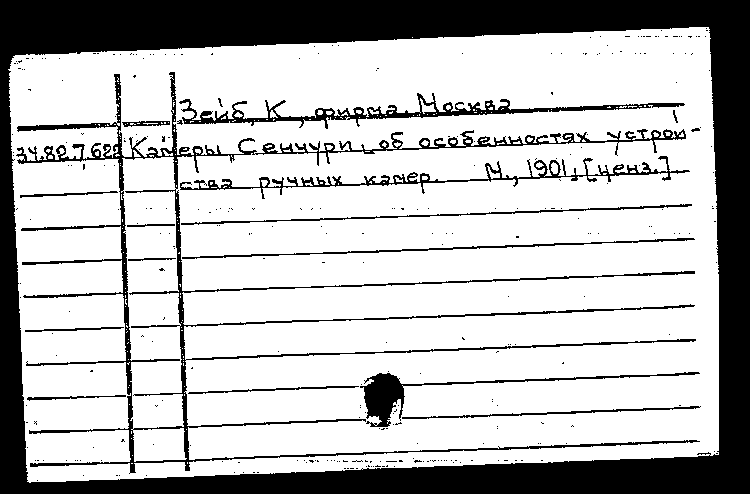 Зейб, К., фирма. Москва
34.82.7.622 Камеры „Сенчури„ об особенностях устрой-
ства ручных камер. М., 1901, [ценз.]